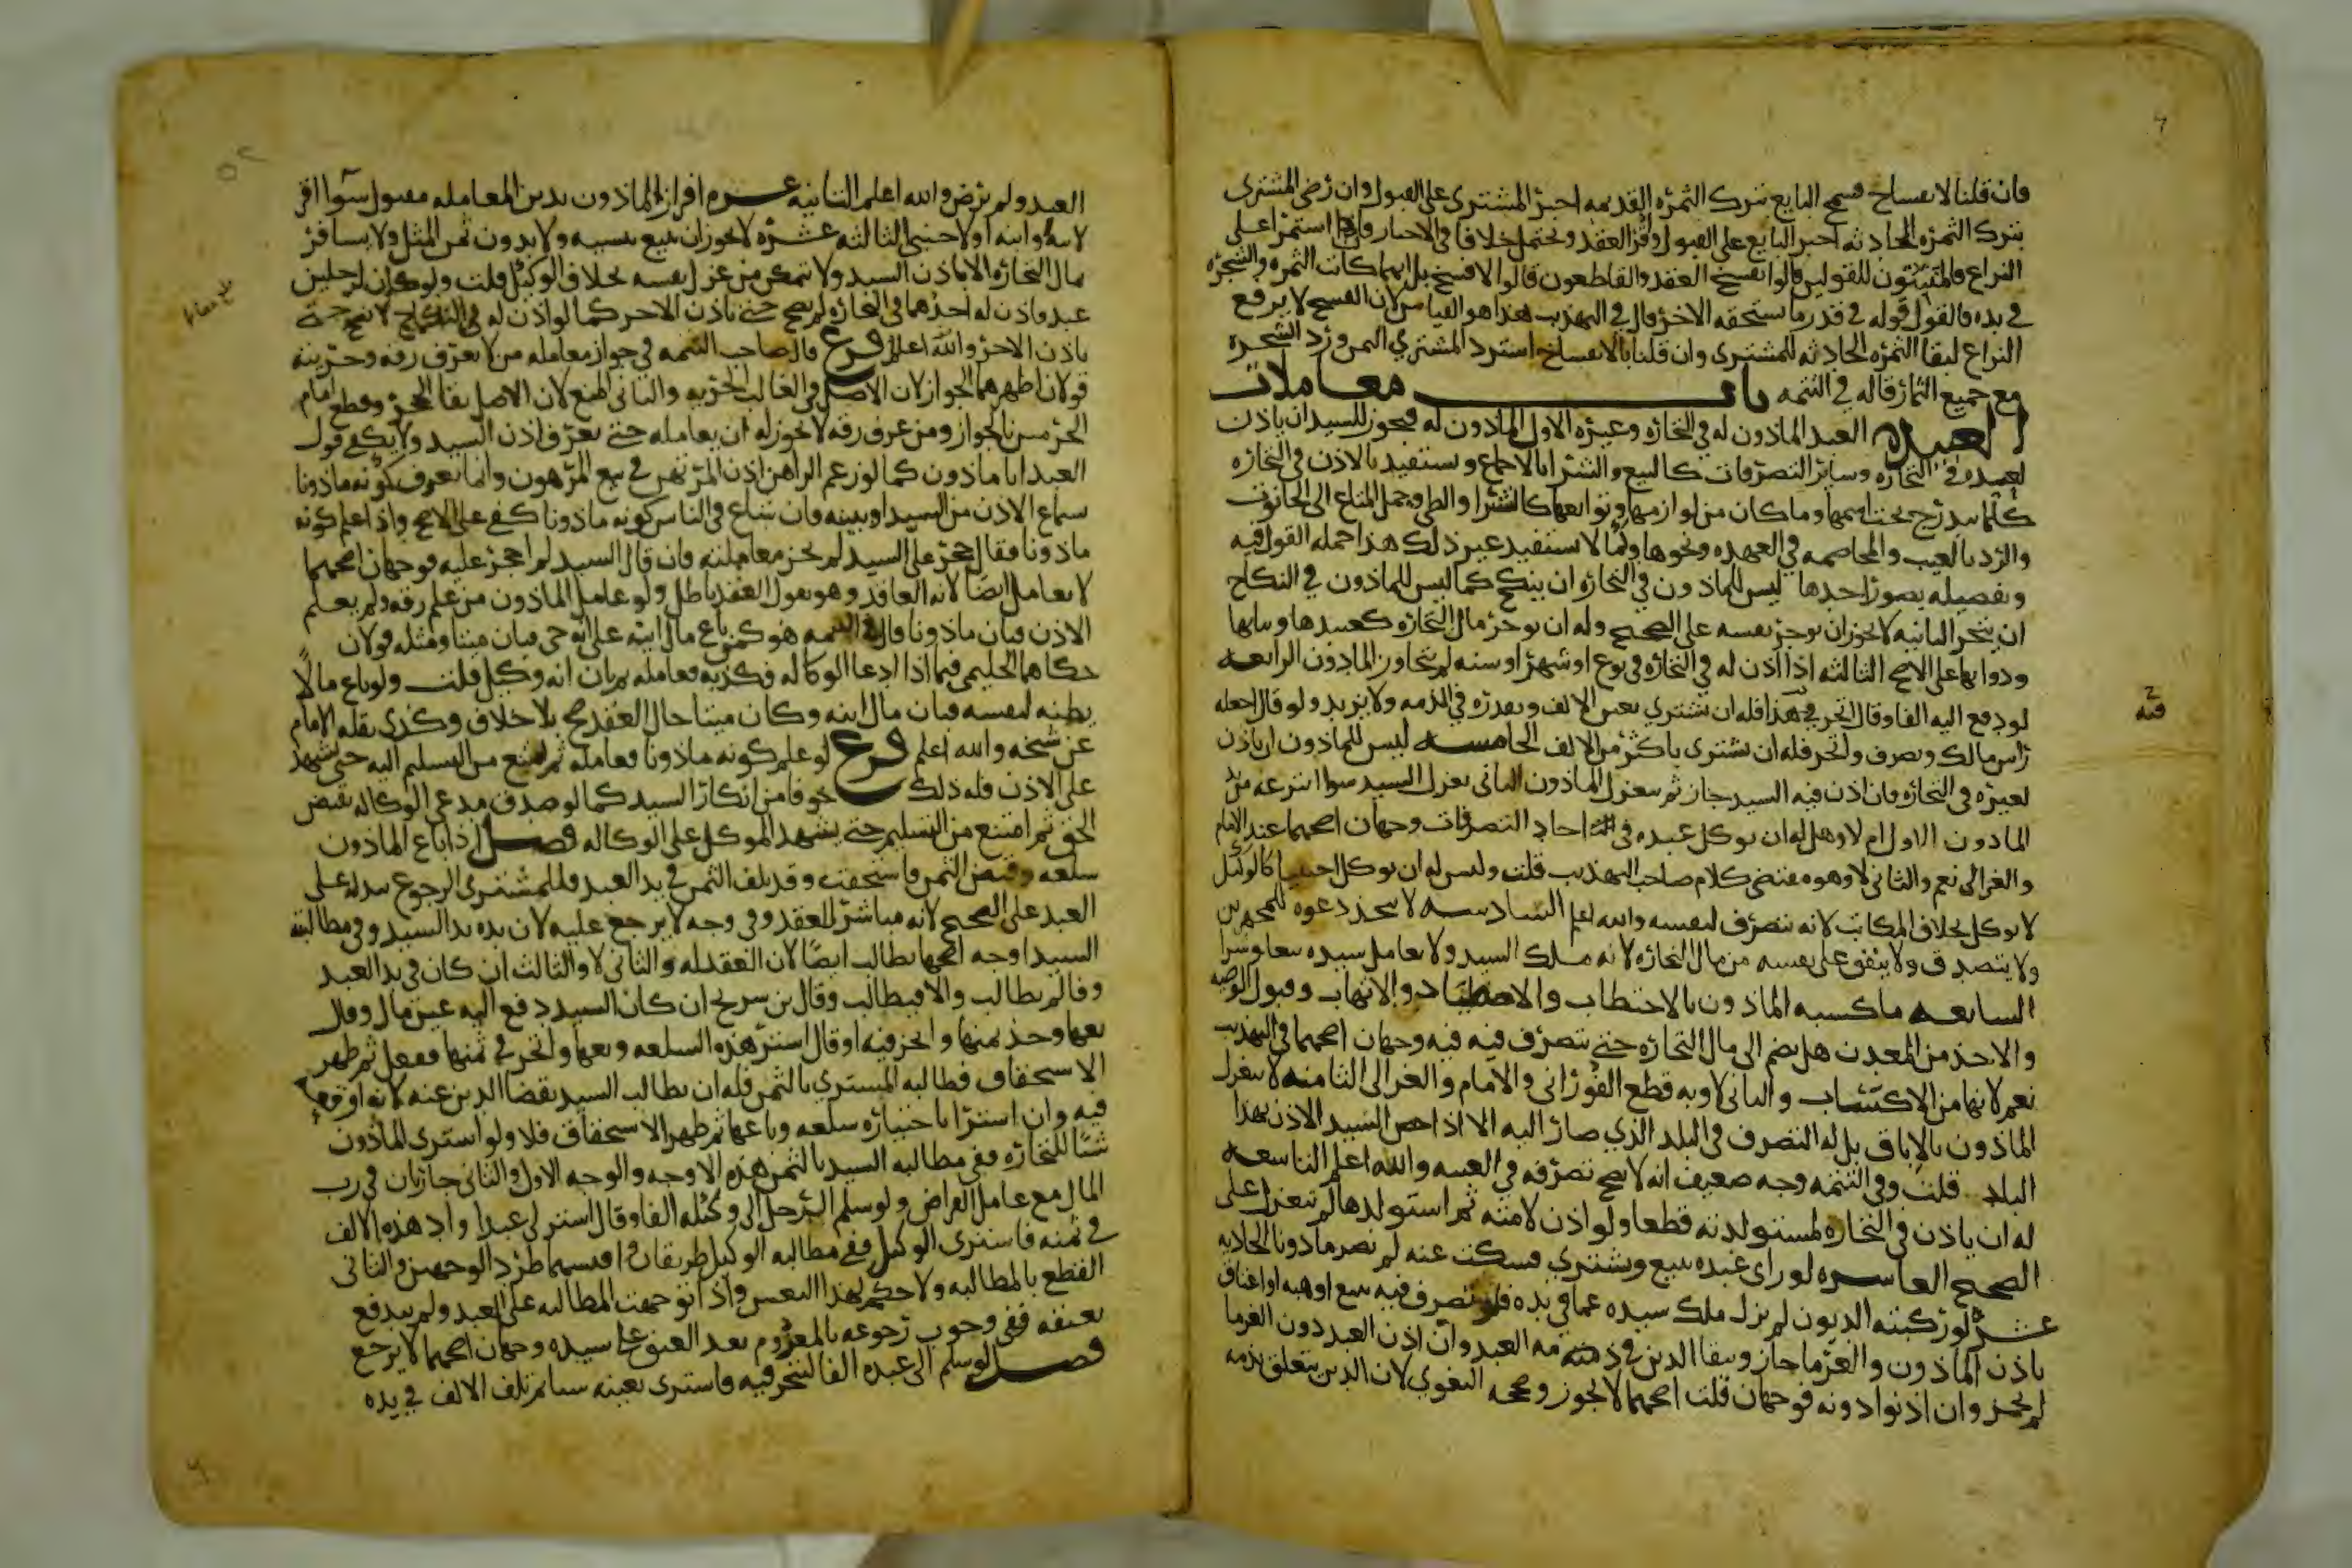 فان قلنا لا انفساخ فسمح البايع بترك الثمره القديمه اجبر المشتري على القبول وان رضي المشتري
بترك الثمره الحادثه اجبر البايع على القبول واقر العقد ويحتمل خلافا في الاجبار وان استمرا على
النزاع فالمثبتون للقولين قالوا نفسخ العقد والقاطعون قالوا لا فسخ بل ايهما كانت الثمره والشجره
في يده فالقول قوله في قدر ما يستحقه الاخر قال في التهذيب هذا هو القياس لان الفسخ لا يرفع
النزاع لبقا الثمره الحادثه للمشتري وان قلنا بالانفساخ استرد المشتري الثمن ورد الشجره
مع جميع الثمار قاله في التتمه باب معاملات
العبيد العبد الماذون له في التجاره وغيره الاول الماذون له فيجوز للسيد ان ياذن
لعبده في التجاره وساير التصرفات كالبيع والشرا بالاجماع ويستفيد بالاذن في التجاره
كلما يندرج تحت اسمها وما كان من لوازمها وتوابعها كالنشر والطي وحمل المتاع الى الحانوت
والرد بالعيب والمخاصمه في العهده ونحوها ولا يستفيد غير ذلك هذا جمله القول فيه
وتفصيله بصور احدها ليس للماذون في التجاره ان ينكح كما ليس للماذون في النكاح
ان يتجر الثانيه لا يجوز ان يوجر نفسه على الصحيح وله ان يوجر مال التجاره كعبيدها وثيابها
ودوابها على الاصح الثالثه اذا اذن له في التجاره في نوع او شهر او سنه لم يتجاوز الماذون الرابعه
لو دفع اليه الفا وقال اتجر في هذا فله ان يشتري بعين الالف وبقدره في الذمه ولا يزيد ولو قال اجعله
فيه
راس مالك وتصرف واتجر فله ان يشتري باكثر من الالف الخامسه ليس للماذون ان ياذن
لغيره في التجاره فان اذن فيه السيد جاز ثم ينعزل الماذون الثاني بعزل السيد سوا انتزعه من يد
الماذون الاول ام لا وهل له ان يوكل عبده في احاد التصرفات وجهان اصحهما عند الامام
والغزالي نعم والثاني لا وهو مقتضى كلام صاحب التهذيب قلت وليس له ان يوكل اجنبيا كالوكيل
لا يوكل بخلاف المكاتب لانه يتصرف لنفسه والله اعلم السادسه لا يتخذ دعوه للمجهزين
ولا يتصدق ولا ينفق على نفسه من مال التجاره لانه ملك السيد ولا يعامل سيده بيعا وشرا
السابعه ما كسبه الماذون بالاحتطاب والاصطياد والاتهاب وقبول الوصيه
والاخذ من المعدن هل يضم الى مال التجاره حتى يتصرف فيه فيه وجهان اصحهما في التهذيب
نعم لانها من الاكتساب والثاني لا وبه قطع الفوراني والامام والغزالي الثامنه لا ينعزل
الماذون بالاباق بل له التصرف في البلد الذي صار اليه الا اذا خص السيد الاذن بهذا
البلد قلت وفي التتمه وجه ضعيف انه لا يصح تصرفه في الغيبه والله اعلم التاسعه
له ان ياذن في التجاره لمستولدته قطعا ولو اذن لامته ثم استولدها لم تنعزل على
الصحيح العاشره لو راى عبده يبيع ويشتري فسكت عنه لم يصر ماذونا الحاديه
عشر لو ركبته الديون لم يزل ملك سيده عما في يده فلو تصرف فيه ببيع او هبه او اعتاق
باذن الماذون والغرما جاز ويبقا الدين في ذمه العبد وان اذن العبد دون الغرما
لم يجز وان اذنوا دونه فوجهان قلت اصحهما لا يجوز وصححه البغوي لان الدين يتعلق بذمه
العبد ولم يرض والله اعلم الثانيه عشره اقرار الماذون بدين المعامله مقبول سوا اقر
لابيه وابنه او لاجنبي الثالثه عشره لا يجوز ان يبيع بنسيه ولا بدون ثمن المثل ولا يسافر
بمال التجاره الا باذن السيد ولا يتمكن من عزل نفسه بخلاف الوكيل قلت ولو كان لرجلين
عبد فاذن له احدهما في التجاره لم يصح حتى ياذن الاخر كما لو اذن له في النكاح لا يصح حتى
ياذن الاخر والله اعلم فرع قال صاحب التتمه في جواز معامله من لا يعرف رقه وحريته
قولان اظهرهما الجواز لان الاصل والغالب الحريه والثاني المنع لان الاصل بقا الحجر وقطع امام
الحرمين بالجواز ومن عرف رقه لا يجوز له ان يعامله حتى يعرف اذن السيد ولا يكفي قول
العبد انا ماذون كما لو زعم الراهن اذن المرتهن في بيع المرهون وانما يعرف كونه ماذونا
سماع الاذن من السيد او بينه فان شاع في الناس كونه ماذونا كفى على الاصح واذا علم كونه
ماذونا فقال حجر علي السيد لم يجز معاملته فان قال السيد لم احجر عليه فوجهان اصحهما
لا يعامل ايضا لانه العاقد وهو يقول العقد باطل ولو عامل الماذون من علم رقه ولم يعلم
الاذن فبان ماذونا قال في التتمه هو كمن باع مال ابيه على انه حي فبان ميتا ومثله قولان
حكاهما الحليمي فيما اذا ادعا الوكاله فكذبه فعامله ثم بان انه وكيل قلت ولو باع مالا
يظنه لنفسه فبان مال ابنه وكان ميتا حال العقد صح بلا خلاف وكذى نقله الامام
عن شيخه والله اعلم فرع لو علم كونه ماذونا فعامله ثم امتنع من التسليم اليه حتى يشهد
على الاذن فله ذلك خوفا من انكار السيد كما لو صدق مدعي الوكاله بقبض
الحق ثم امتنع من التسليم حتى يشهد الموكل على الوكاله فصل اذا باع الماذون
سلعه وقبض الثمن فاستحقت وقد تلف الثمن في يد العبد فللمشتري الرجوع ببدله على
العبد على الصحيح لانه مباشر للعقد وفي وجه لا يرجع عليه لان يده يد السيد وفي مطالبته
السيد اوجه اصحها يطالب ايضا لان العقد له والثاني لا والثالث ان كان في يد العبد
وفا لم يطالب والا فيطالب وقال بن سريج ان كان السيد دفع اليه عين مال وقال
بعها وخذ ثمنها واتجر فيه او قال اشتر هذه السلعه وبعها واتجر في ثمنها ففعل ثم ظهر
الاستحقاق فطالبه المشتري بالثمن فله ان يطالب السيد بقضا الدين عنه لانه اوقعه
فيه وان اشترا باختياره سلعه وباعها ثم ظهر الاستحقاق فلا ولو اشترى الماذون
شيا للتجاره ففي مطالبه السيد بالثمن هذه الاوجه والوجه الاول والثاني جاريان في رب
المال مع عامل القراض ولو سلم الرجل الى وكيله الفا وقال اشتر لي عبدا واد هذه الالف
في ثمنه فاشترى الوكيل ففي مطالبه الوكيل طريقان اقيسهما طرد الوجهين والثاني
القطع بالمطالبه ولا حكم لهذا التعيين واذا توجهت المطالبه على العبد ولم يندفع
بعتقه ففي وجوب رجوعه بالمغروم بعد العتق على سيده وجهان اصحهما لا يرجع
فصل لو سلم الى عبده الفا ليتجر فيه فاشترى بعينه شيا ثم تلف الالف في يده